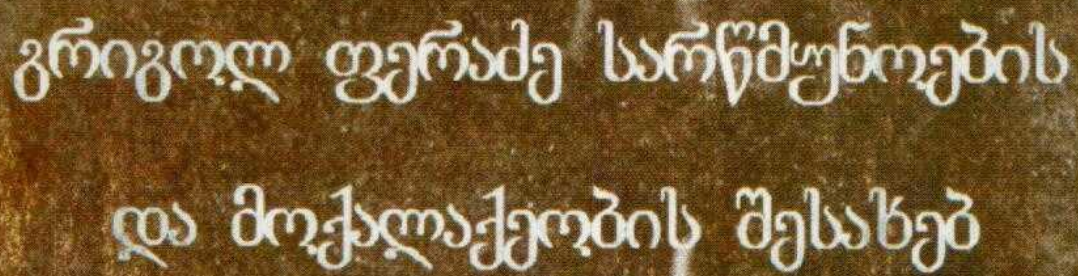 გრიგოლ ფერაძე სარწმუნოების
და მოქალაქეობის შესახებ